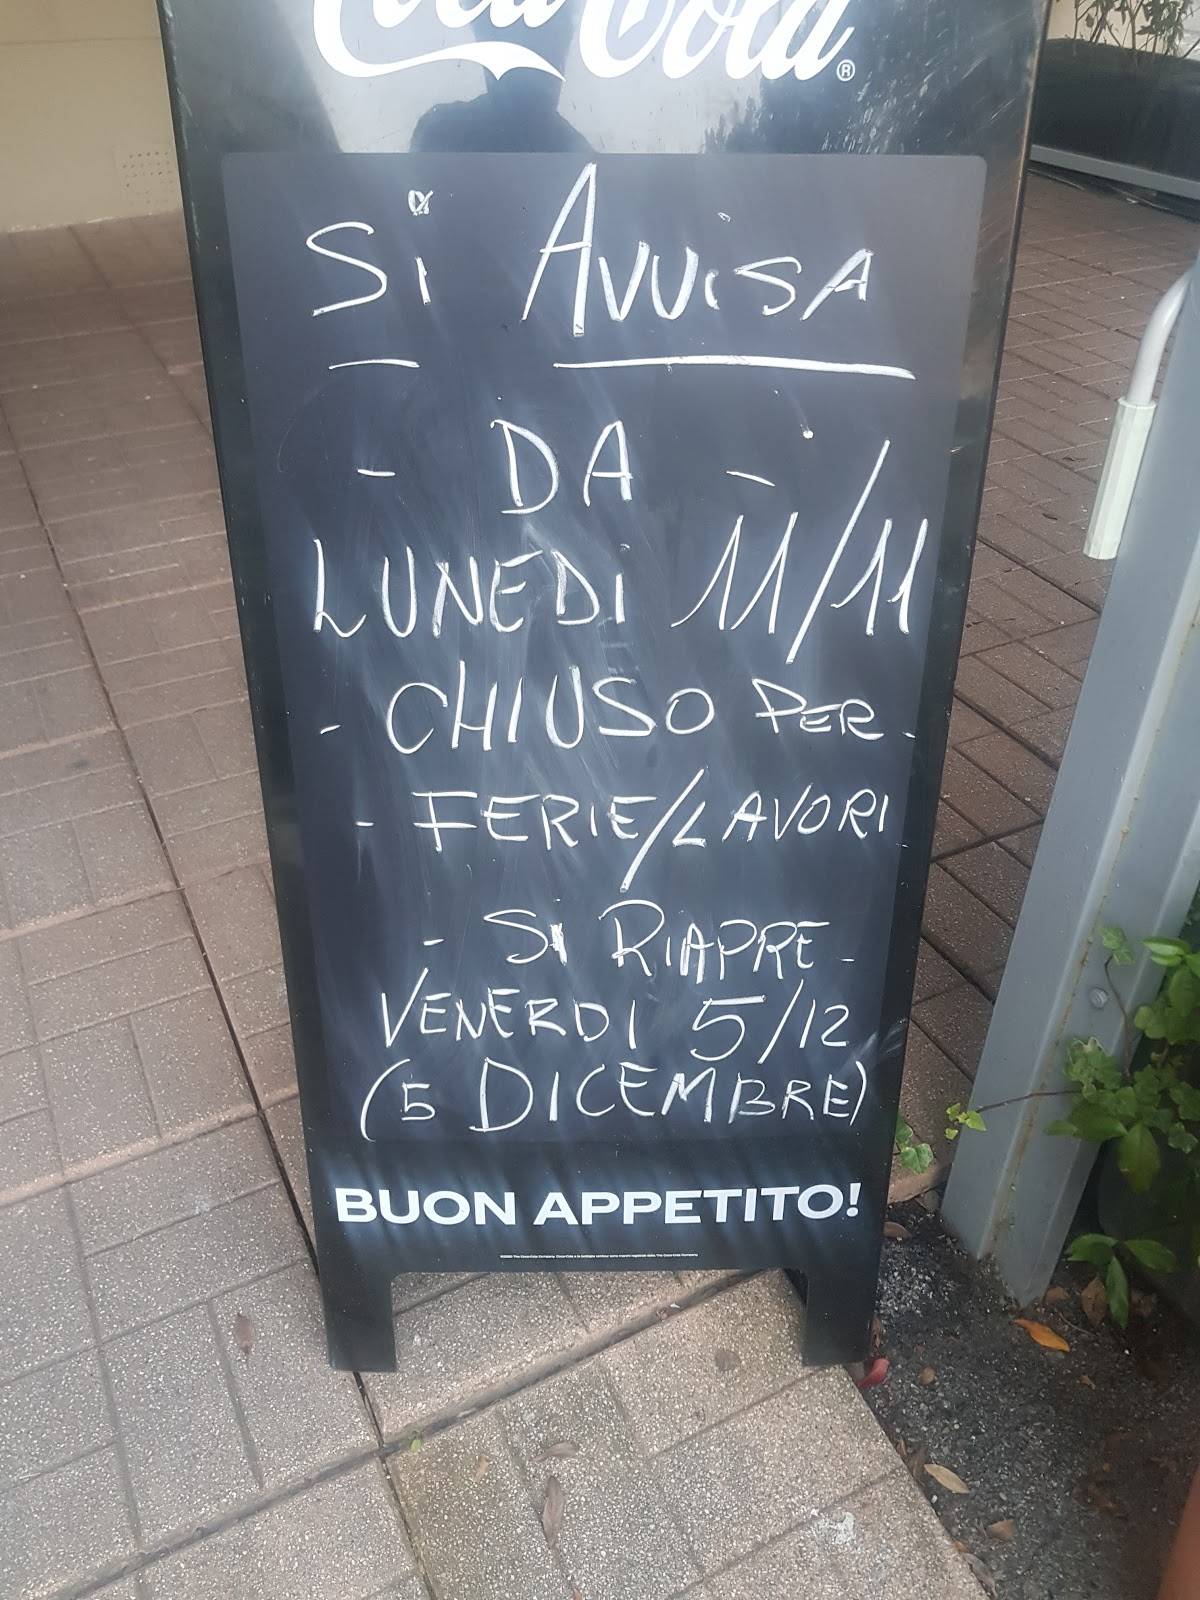 Coca-Cola®
Si AVViSA
- DA -
LUNEDì 11/11
- CHIUSO PER -
- FERIE/LAVORI
- Si RIAPRE -
VENERDI 5/12
(5 DICEMBRE)
BUON APPETITO!